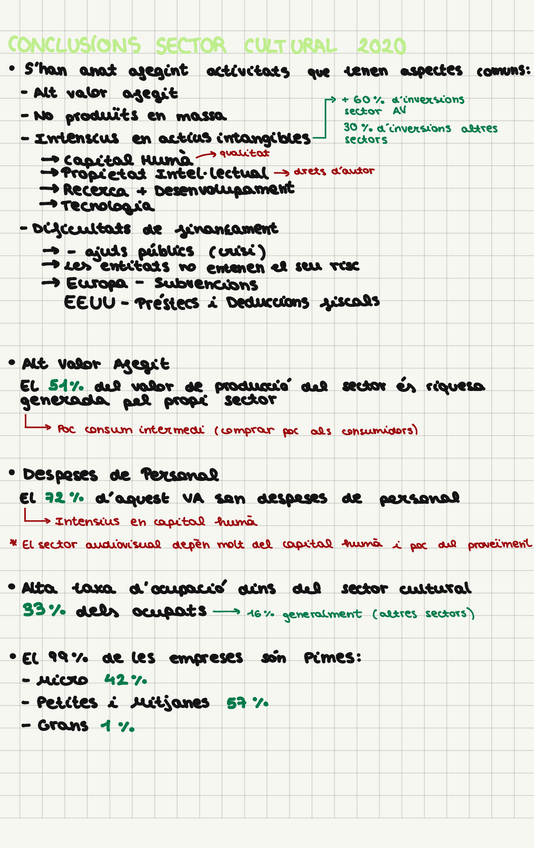 CONCLUSIONS SECTOR CULTURAL 2020
• S'han anat afegint activitats que tenen aspectes comuns:
- Alt valor afegit
- No produïts en massa
- Intensius en actius intangibles
+ 60% d'inversions
sector AV
30% d'inversions altres
sectors
→ Capital Humà → qualitat
→ Propietat Intel·lectual → drets d'autor
→ Recerca + Desenvolupament
→ Tecnologia
- Dificultats de finançament
→ - ajuts públics (crisi)
→ Les entitats no entenen el seu risc
→ Europa - Subvencions
EEUU - Préstecs i Deduccions fiscals
• Alt Valor Afegit
El 51% del valor de producció del sector és riquesa
generada pel propi sector
→ Poc consum intermedi (comprar poc als consumidors)
• Despeses de Personal
El 72% d'aquest VA son despeses de personal
→ Intensius en capital humà
* El sector audiovisual depèn molt del capital humà i poc del proveïment
• Alta taxa d'ocupació dins del sector cultural
33% dels ocupats → 16% generalment (altres sectors)
• El 99% de les empreses són Pimes:
- Micro 42%
- Petites i Mitjanes 57%
- Grans 1%